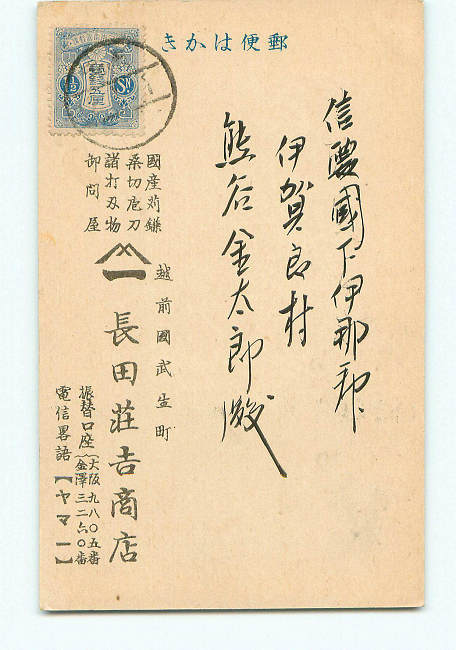 郵便はかき
信濃國下伊那郡
伊賀良村
熊谷金太郎殿
國産苅鎌
桑切庖刀
諸打刃物
御問屋
越前國武生町
長田荘吉商店
振替口座(大阪九八〇五番
金澤三二六〇番
電信畧語【ヤマ一】